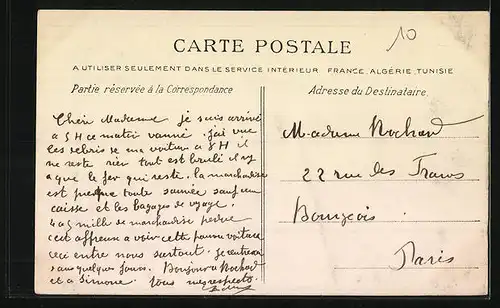 10
CARTE POSTALE
A UTILISER SEULEMENT DANS LE SERVICE INTÉRIEUR FRANCE, ALGÉRIE, TUNISIE
Partie réservée à la Correspondance
Adresse du Destinataire.
Chère Madame je suis arrivé
a 5 H ce matin vanné. jai vue
les debris de ma voiture a 8 H il
ne reste rien tout est brulé il ny
a que le fer qui reste. la marchandise
est presque toute sauvée sauf une
caisse et les bagages de voyage.
4 a 5 mille de marchandise perdue
cest affreuse a voir cette pauvre voiture
ceci entre nous surtout. je rentrerai
dans quelques jours. Bonjour a Rochard
et a Simone. Tous mes respects
Madame Rochard
22 rue des Francs
Bourgeois.
Paris